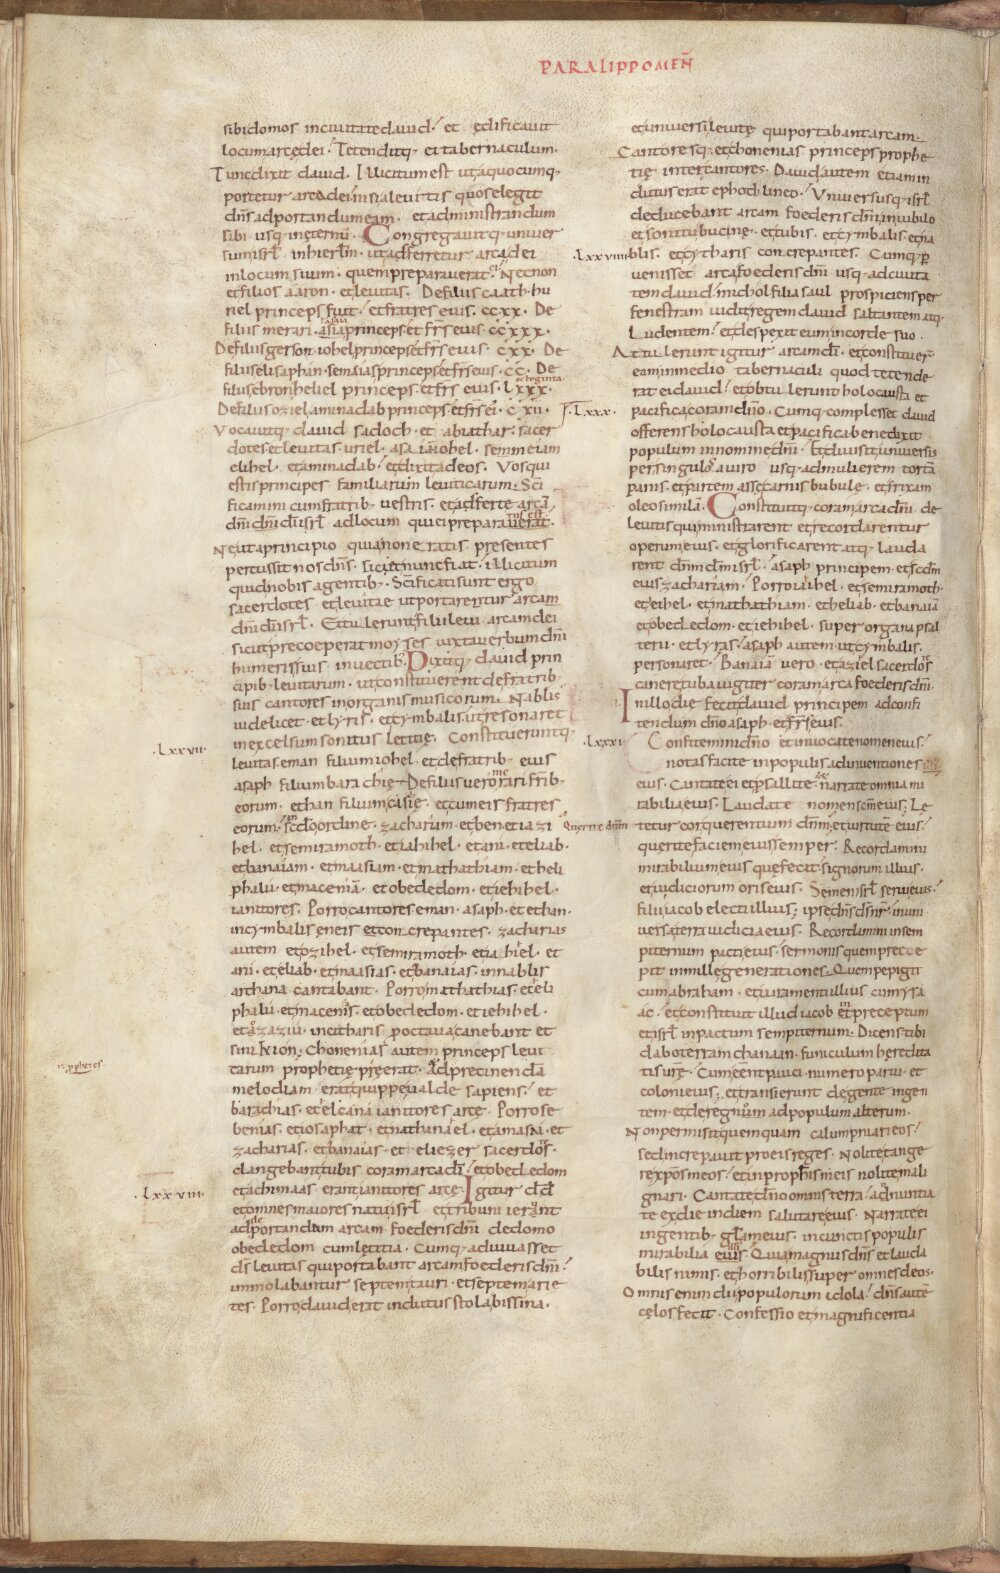 PARALIPPOMEN̄
sibi domos incivitate david / et ędificavit
locum arcę dei / Tetenditq; ei tabernaculum.
Tunc dixit david. Illicitum est ut aquocumq;
portetur arca dei nisi alevitis quos elegit
dn̄s adportandum eam. et administrandum
sibi usq; inęternū. Congregavitq; univer
sum isrl̄ inhierlm̄. ut adferretur arca dei
inlocum suum. quem preparaverat ei. Necnon
et filios aaron. et levitas. De filiis caath. hu
riel princeps fuit / et fratres eius. ccxx. De
filiis merari. asaia princeps. et fr̄s eius ccxxx.
De filiis gerson. iohel princeps. et fr̄s eius. cxx. De
filiis elisaphan. semaias princeps. et fr̄s eius. cc. De
filiis ebron. heliel princeps. et fr̄s eius. lxxx. octoginta
De filiis oziel. aminadab princeps. et fr̄s ei. cxii.
Vocavitq; david sadoch. et abiathar. sacer
dotes. et levitas. uriel. asaiā. iohel. semmeiam
elihel. et aminadab / et dixit adeos. Vos qui
estis principes familiarum leviticarum. Scī
ficamini cum fratrib; vestris. et adferte arcā
dn̄i dī isrl̄ adlocum qui ei preparatus est.
Ne ut aprincipio quia non eratis presentes
percussit nos dn̄s. sic et nunc fiat. illicitum
quid nobis agentib;. Scīficati sunt ergo
sacerdotes et levitae ut portarent arcam
dn̄i dī isrl̄. Et tulerunt filii levi arcam dei
sicut precoeperat moyses iuxta verbum dn̄i
humeris suis invectib;. Dixitq; david prin
cipib; levitarum. ut constituerent defratrib;
suis cantores inorganis musicorum. Nablis
videlicet. et lyris. et cymbalis. ut resonaret
inexcelsum sonitus letitię. Constitueruntq;
.lxxvii.
levitas. eman filium iohel. et defratrib; eius
asaph filium barachię. De filiis vero merari frīb;
eorum. ethan filium casaię. et cum eis fratres
eorum. in scdo ordine. zachariam. et ben. et iazi
hel. et semiramoth. et iahihel. et ani. et eliab.
et banaiam. et maasiam. et mathathiam. et heli
phalu. et maceniā. et obededom. et iehihel.
ianitores. Porro cantores eman. asaph. et ethan.
incymbalis ęneis et concrepantes. zacharias
autem et ozihel. et semiramoth. et iahiel. et
ani. et eliab. et maasias. et banaias. innablis
archana cantabant. Porro mathathias. et eli
phalu. et macenias. et obededom. et iehihel.
et azaziu. incitharis p octava canebant et
sinikion. Chonenias autem princeps levi
tarum prophetię pręerat. Ad precinenda
melodiam. erat quippe valde sapiens / et
barachias. et elcana ianitores arcę. Porro se
benias. et iosaphat. et nathanael. et amasai. et
zacharias. et banaias. et eliezer sacerdos.
clangebant tubis coram arca dī / et obededom
.lxxviii.
et achimaas. erant ianitores arcę. Igitur dd̄
et omnes maiores natu isrl̄ et tribuni ierunt
ad deportandam arcam foederis dn̄i dedomo
obededom cum lętitia. Cumq; adiuvasset
ds̄ levitas qui portabant arcam foederis dn̄i /
immolabantur septem tauri. et septem arie
tes. Porro david erat indutus stola bissina.
et universi levitę qui portabant arcam.
Cantoresq;. et chonenias princeps prophe
tię inter cantores. David autem etiam in
dutus erat ephoth lineo. Universusq; isrl̄
deducebant arcam foederis dn̄i iniubilo
et sonitu bucinę. et tubis. et cymbalis. et na
.lxxviiii.
blis. et cytharis concrepantes. Cumq; p̱
venisset arca foederis dn̄i usq; adcivita
tem david / michol filia saul prospiciens per
fenestram vidit regem david saltantem atq;
Ludentem / et despexit eum incorde suo.
Attulerunt igitur arcam dī. et constituer̄
eam inmedio tabernaculi quod tetende
rat ei david / et obtulerunt holocausta et
.lxxx.
pacifica coram dn̄o. Cumq; complesset david
offerens holocausta et pacifica benedixit
populum innomine dn̄i. Et divisit universis
per singulos aviro usq; admulierem tortā
panis. et partem assę carnis bubulę. et frixam
oleo similā. Constituitq; coram arca dn̄i de
levitis qui ministrarent et recordarentur
operum eius. et glorificarent atq; lauda
rent dn̄m dm̄ isrl̄. asaph principem. et scdm̄
eius zachariam. Porro iaihel. et semiramoth.
et eihel. et mathathiam. et heliab. et banaiā
et obededom. et iehihel. super organa psal
terii. et lyras / asaph autem ut cymbalis.
personaret. Banaiā vero. et aziel sacerdos
canere tuba iugiter coram arca foederis dn̄i.
Inillo die fecit david principem adconfi
tendum dn̄o asaph. et fr̄s eius.
.lxxxi.
Confitemini dn̄o et invocate nomen eius /
notas facite inpopulis adinventiones
eius. Cantate ei. et psallite ei. narrate omnia mi
rabilia eius. Laudate nomen scm̄ eius. Lę
tetur cor querentium dn̄m. et virtutē eius /
querite faciem eius semper. Recordamini
mirabilium eius que fecit / signorum illius.
et iudiciorum oris eius. Semen isrl̄ servi eius /
filii iacob electi illius / ipse dn̄s ds̄ nr̄ / inuni
versa terra iudicia eius. Recordamini insem
piternum pacti eius. sermonis quem prece
pit inmille generationes. Quem pepigit
cum abraham. et iuramenti illius cum ysa
ac. et constituit illud iacob in preceptum
et isrl̄ inpactum sempiternum. Dicens tibi
dabo terram chanaan. funiculum heredita
tis urę. Cum eent pauci numero parvi. et
coloni eius. et transierunt degente ingen
tem. et deregno adpopulum alterum.
Non permisit quemquam calumpniari eos /
sed increpavit pro eis reges. Nolite tange
re xpos meos / et inprophetis meis nolite mali
gnari. Cantate dn̄o omnis terra / adnuntia
te exdie indiem salutare eius. Narrate ei
ingentib; glam̄ eius. incunctis populis
mirabilia eius. Quia magnus dn̄s et lauda
bilis nimis. et horribilis super omnes deos.
Omnis enim dii populorum idola / dn̄s autē
cęlos fecit. Confessio et magnificentia